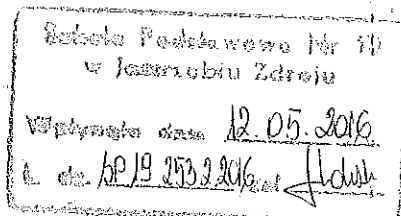 Szkoła Podstawowa Nr 19
w Jastrzębiu Zdroju
Wpłynęło dnia 12.05.2016
L. dz. SP19 253.2.2016